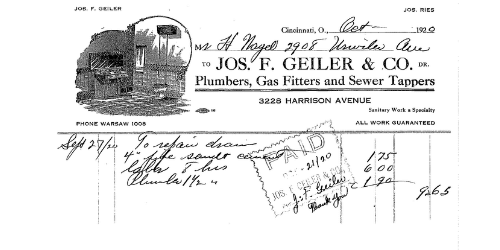 JOS. F. GEILER JOS. RIES
Cincinnati, O., Oct 1920
Mr H Nagel 2908 Urwiler Ave
TO JOS. F. GEILER & CO. DR.
Plumbers, Gas Fitters and Sewer Tappers
3228 HARRISON AVENUE
Sanitary Work a Specialty
PHONE WARSAW 1008 ALL WORK GUARANTEED
Sep 27/20 To repair drain
4" pipe sand cement 1.75
Labor 8 hrs 6.00
Plumber 1½ " 1.90
9.65
PAID
21/20
JOS. F. GEILER
J. F. Geiler
Thank you